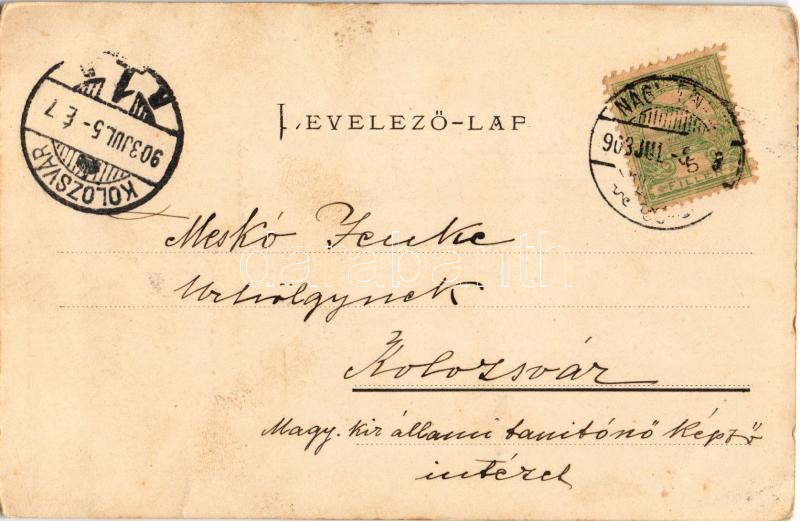 LEVELEZŐ-LAP
KOLOZSVÁR
903 JUL. 5 - É 7
903 JUL. - 5
FILLÉR
Meskó Jenke
Urhölgynek
Kolozsvár
Magy. kir állami tanitónő képző
intézet
darabanth